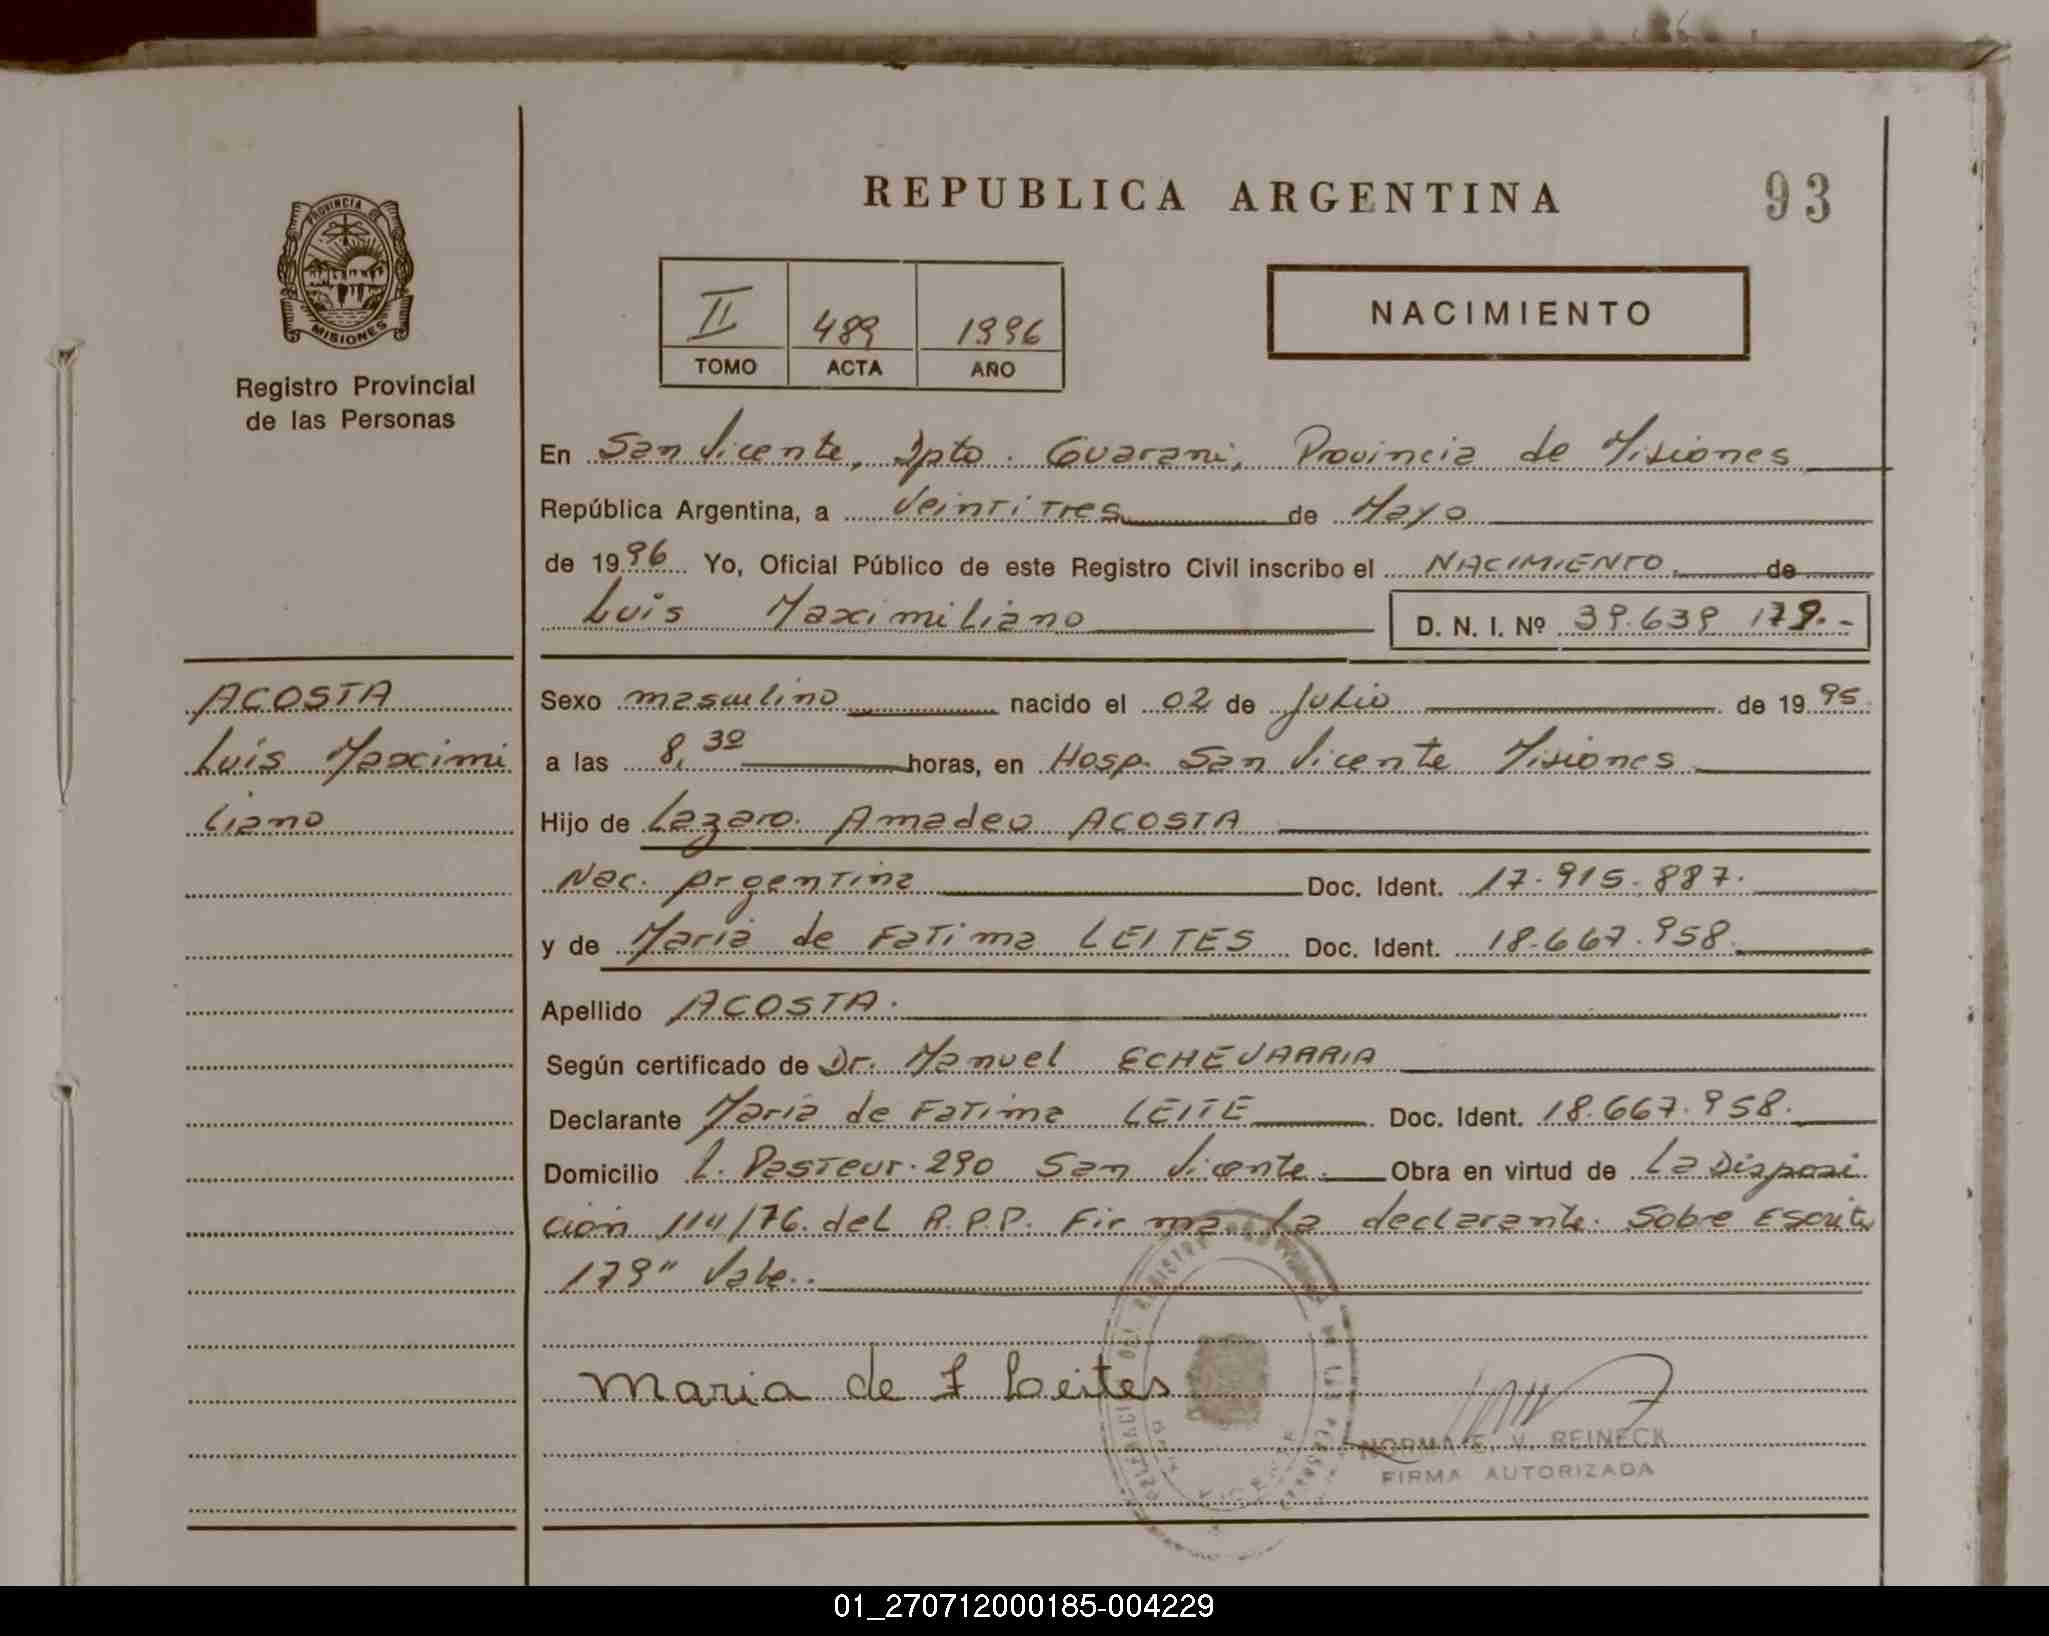 93
REPUBLICA ARGENTINA
PROVINCIA DE
MISIONES
Registro Provincial
de las Personas
II 489 1996
TOMO ACTA AÑO
NACIMIENTO
En San Vicente, Dpto. Guarani, Provincia de Misiones
República Argentina, a Veintitres de Mayo
de 1996 Yo, Oficial Público de este Registro Civil inscribo el NACIMIENTO de
Luis Maximiliano D. N. I. Nº 39.639 179.-
ACOSTA
Luis Maximi
liano
Sexo masculino nacido el 02 de Julio de 1995
a las 8,30 horas, en Hosp. San Vicente Misiones
Hijo de Lazaro Amadeo ACOSTA
Nac. Argentina Doc. Ident. 17.915.887.
y de Maria de Fatima LEITES Doc. Ident. 18.667.958.
Apellido ACOSTA.
Según certificado de Dr. Manuel ECHEVARRIA
Declarante Maria de Fatima LEITE Doc. Ident. 18.667.958.
Domicilio L. Pasteur. 290 San Vicente. Obra en virtud de La Disposi
ción 114/76. del R.P.P. Firma la declarante. Sobre Escrito
179" Vale.
Maria de F Leites
NORMA E. V. REINECK
FIRMA AUTORIZADA
01_270712000185-004229